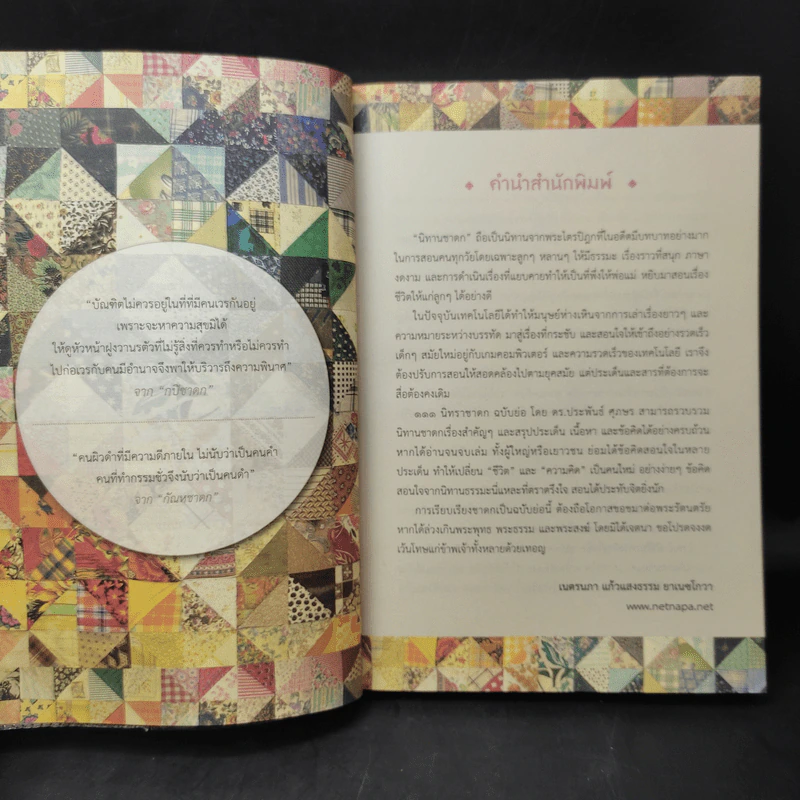 “บัณฑิตไม่ควรอยู่ในที่ที่มีคนเวรกันอยู่
เพราะจะหาความสุขมิได้
ให้ดูหัวหน้าฝูงวานรตัวที่ไม่รู้สิ่งที่ควรทำหรือไม่ควรทำ
ไปก่อเวรกับคนมีอำนาจจึงพาให้บริวารถึงความพินาศ”
จาก “กปิชาดก”
“คนผิวดำที่มีความดีภายใน ไม่นับว่าเป็นคนดำ
คนที่ทำกรรมชั่วจึงนับว่าเป็นคนดำ”
จาก “กัณหชาดก”
คำนำสำนักพิมพ์
“นิทานชาดก” ถือเป็นนิทานจากพระไตรปิฎกที่ในอดีตมีบทบาทอย่างมาก
ในการสอนคนทุกวัยโดยเฉพาะลูกๆ หลานๆ ให้มีธรรมะ เรื่องราวที่สนุก ภาษา
งดงาม และการดำเนินเรื่องที่แยบคายทำให้เป็นที่พึ่งให้พ่อแม่ หยิบมาสอนเรื่อง
ชีวิตให้แก่ลูกๆ ได้อย่างดี
ในปัจจุบันเทคโนโลยีได้ทำให้มนุษย์ห่างเหินจากการเล่าเรื่องยาวๆ และ
ความหมายระหว่างบรรทัด มาสู่เรื่องที่กระชับ และสอนใจให้เข้าถึงอย่างรวดเร็ว
เด็กๆ สมัยใหม่อยู่กับเกมคอมพิวเตอร์ และความรวดเร็วของเทคโนโลยี เราจึง
ต้องปรับการสอนให้สอดคล้องไปตามยุคสมัย แต่ประเด็นและสารที่ต้องการจะ
สื่อต้องคงเดิม
๑๑๑ นิทราชาดก ฉบับย่อ โดย ดร.ประพันธ์ ศุภษร สามารถรวบรวม
นิทานชาดกเรื่องสำคัญๆ และสรุปประเด็น เนื้อหา และข้อคิดได้อย่างครบถ้วน
หากได้อ่านจนจบเล่ม ทั้งผู้ใหญ่หรือเยาวชน ย่อมได้ข้อคิดสอนใจในหลาย
ประเด็น ทำให้เปลี่ยน “ชีวิต” และ “ความคิด” เป็นคนใหม่ อย่างง่ายๆ ข้อคิด
สอนใจจากนิทานธรรมะนี่แหละที่ตราตรึงใจ สอนได้ประทับจิตยิ่งนัก
การเรียบเรียงชาดกเป็นฉบับย่อนี้ ต้องถือโอกาสขอขมาต่อพระรัตนตรัย
หากได้ล่วงเกินพระพุทธ พระธรรม และพระสงฆ์ โดยมิได้เจตนา ขอโปรดจงงด
เว้นโทษแก่ข้าพเจ้าทั้งหลายด้วยเทอญ
เนตรนภา แก้วแสงธรรม ยาเนซโกวา
www.netnapa.net